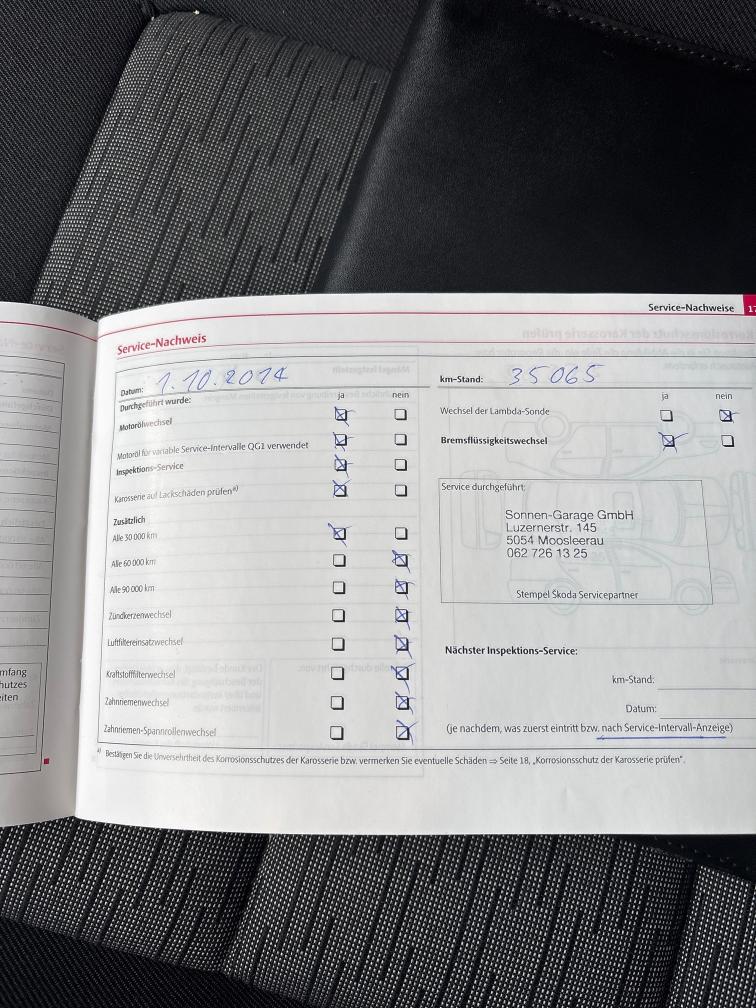 Service-Nachweise 17
Service-Nachweis
Datum: 1.10.2014
km-Stand: 35065
Durchgeführt wurde: ja nein
Motorölwechsel
Motoröl für variable Service-Intervalle QG1 verwendet
Inspektions-Service
Karosserie auf Lackschäden prüfen a)
Zusätzlich
Alle 30 000 km
Alle 60 000 km
Alle 90 000 km
Zündkerzenwechsel
Luftfiltereinsatzwechsel
Kraftstofffilterwechsel
Zahnriemenwechsel
Zahnriemen-Spannrollenwechsel
ja nein
Wechsel der Lambda-Sonde
Bremsflüssigkeitswechsel
Service durchgeführt:
Sonnen-Garage GmbH
Luzernerstr. 145
5054 Moosleerau
062 726 13 25
Stempel Škoda Servicepartner
Nächster Inspektions-Service:
km-Stand:
Datum:
(je nachdem, was zuerst eintritt bzw. nach Service-Intervall-Anzeige)
a) Bestätigen Sie die Unversehrtheit des Korrosionsschutzes der Karosserie bzw. vermerken Sie eventuelle Schäden ⇒ Seite 18, „Korrosionsschutz der Karosserie prüfen“.